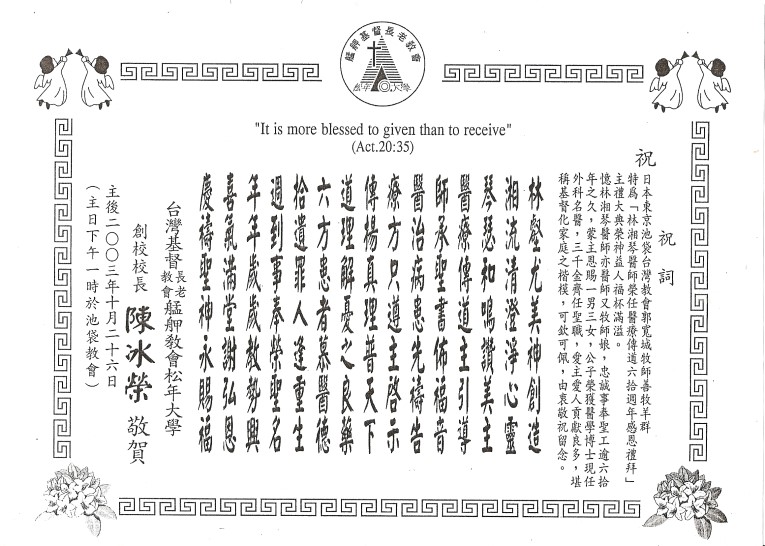 艋舺基督長老教會
松年大學
"It is more blessed to given than to receive"
(Act.20:35)
祝
祝詞
日本東京池袋台灣教會郭寬城牧師善牧羊群
特為「林湘琴醫師榮任醫療傳道六拾週年感恩禮拜」
主禮大典榮神益人福杯滿溢。
憶林湘琴醫師亦醫師又牧師娘，忠誠事奉聖工逾六拾
年之久，蒙主恩賜一男三女，公子榮獲醫學博士現任
外科名醫，三千金齊任聖職，愛主愛人貢獻良多，堪
稱基督化家庭之楷模，可欽可佩，由衷敬祝留念。
林壑尤美神創造
湘流清澄淨心靈
琴瑟和鳴讚美主
醫療傳道主引導
師承聖書佈福音
醫治病患先禱告
療方只導主啓示
傳揚真理普天下
道理解憂之良藥
六方患者慕醫德
拾遺罪人逢重生
週到事奉榮聖名
年年歲歲教勢興
喜氣滿堂謝弘恩
慶禱聖神永賜福
台灣基督長老教會艋舺教會松年大學
創校校長 陳冰榮 敬賀
主後二○○三年十月二十六日
（主日下午一時於池袋教會）